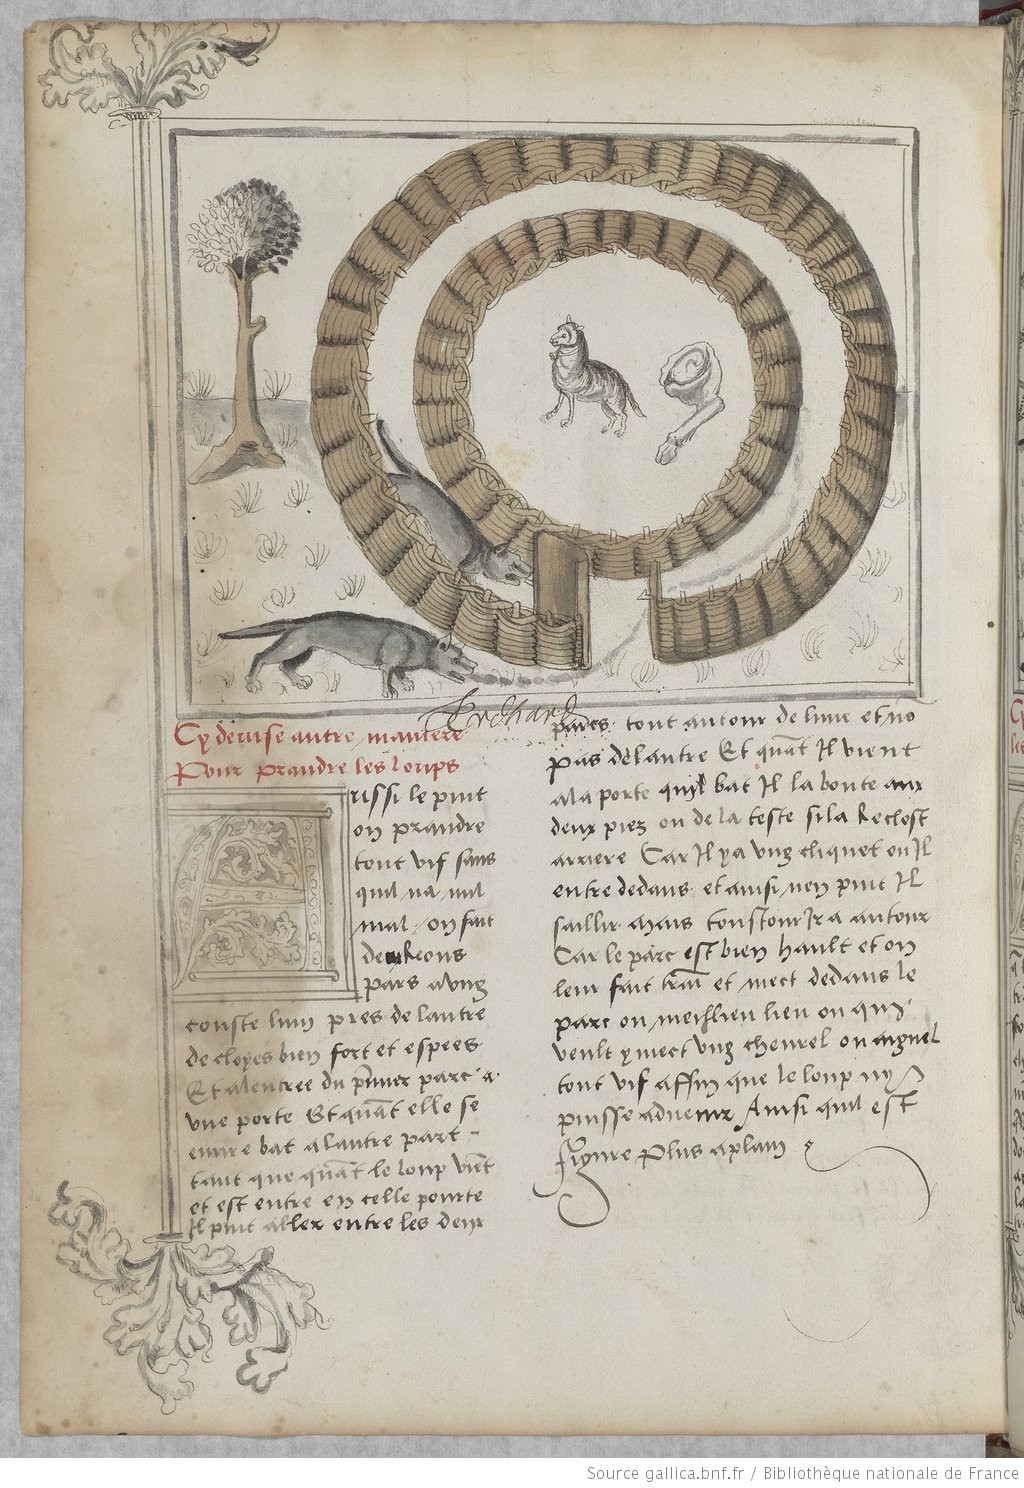 Trchard
Cy devise autre maniere
Pour prandre les loups
Aussi le puit
on prandre
tout vif sans
quil na nul
mal / on fait
deux Reons
pars a vng
couste lun pres de lautre
de cloyes bien fort et espees
Et a lentree du pmier parc a
vne porte Et quāt elle se
euure bat a lautre part
tant que quāt le loup viēt
et est entre en celle pourte
Il puit aller entre les deux
parcs tout autour de lune et nō
pas de lautre Et quāt Il vient
a la porte quil bat Il la boute aux
deux piez ou de la teste si la Reclost
arriere Car Il y a vng cliquet ou Il
entre dedans et ainsi nen puit Il
saillir mais tousiour Ira autour
Car le parc est bien hault et on
leur fait traī et mect dedans le
parc ou meillieu lieu on qui
veult y mect vng cheurel ou aignel
tout vif affin que le loup ny
puisse advenir Ainsi quil est
figure plus aplain
Source gallica.bnf.fr / Bibliothèque nationale de France